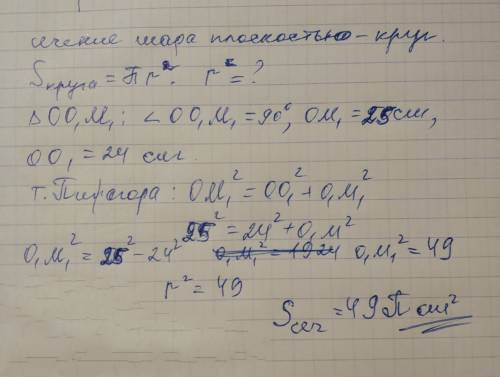 сечение шара плоскостью - круг.
Sкруга = Пr². r² = ?
△OO₁M₁: ∠OO₁M₁ = 90°, OM₁ = 25 см,
OO₁ = 24 см.
т. Пифагора: OM₁² = OO₁² + O₁M₁²
25² = 24² + O₁M²
O₁M₁² = 25² - 24² O₁M₁² = 1924 O₁M₁² = 49
r² = 49
Sсеч = 49П см²